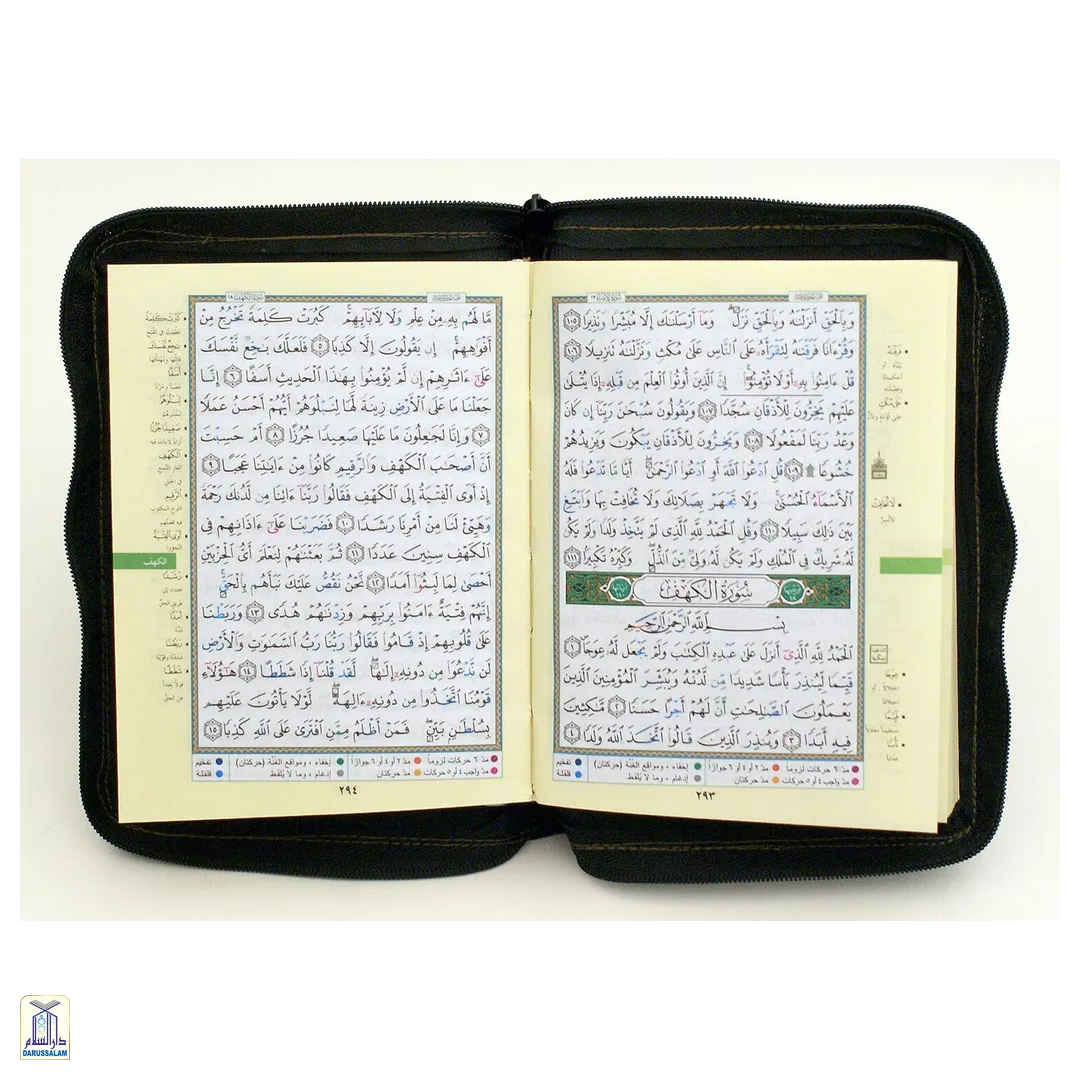 سورة الإسراء ١٧
وَبِالْحَقِّ أَنزَلْنَاهُ وَبِالْحَقِّ نَزَلَ وَمَا أَرْسَلْنَاكَ إِلَّا مُبَشِّرًا وَنَذِيرًا ١٠٥
وَقُرْءَانًا فَرَقْنَاهُ لِتَقْرَأَهُ عَلَى النَّاسِ عَلَى مُكْثٍ وَنَزَّلْنَاهُ تَنزِيلًا ١٠٦
قُلْ ءَامِنُوا بِهِ أَوْ لَا تُؤْمِنُوا إِنَّ الَّذِينَ أُوتُوا الْعِلْمَ مِن قَبْلِهِ إِذَا يُتْلَى
عَلَيْهِمْ يَخِرُّونَ لِلْأَذْقَانِ سُجَّدًا ١٠٧ وَيَقُولُونَ سُبْحَانَ رَبِّنَا إِن كَانَ
وَعْدُ رَبِّنَا لَمَفْعُولًا ١٠٨ وَيَخِرُّونَ لِلْأَذْقَانِ يَبْكُونَ وَيَزِيدُهُمْ
خُشُوعًا ١٠٩ قُلِ ادْعُوا اللَّهَ أَوِ ادْعُوا الرَّحْمَنَ أَيًّا مَّا تَدْعُوا فَلَهُ
الْأَسْمَاءُ الْحُسْنَى وَلَا تَجْهَرْ بِصَلَاتِكَ وَلَا تُخَافِتْ بِهَا وَابْتَغِ
بَيْنَ ذَلِكَ سَبِيلًا ١١٠ وَقُلِ الْحَمْدُ لِلَّهِ الَّذِي لَمْ يَتَّخِذْ وَلَدًا وَلَمْ يَكُن
لَّهُ شَرِيكٌ فِي الْمُلْكِ وَلَمْ يَكُن لَّهُ وَلِيٌّ مِّنَ الذُّلِّ وَكَبِّرْهُ تَكْبِيرًا ١١١
سُورَةُ الْكَهْفِ
بِسْمِ اللَّهِ الرَّحْمَنِ الرَّحِيمِ
الْحَمْدُ لِلَّهِ الَّذِي أَنزَلَ عَلَى عَبْدِهِ الْكِتَابَ وَلَمْ يَجْعَل لَّهُ عِوَجًا ١
قَيِّمًا لِّيُنذِرَ بَأْسًا شَدِيدًا مِّن لَّدُنْهُ وَيُبَشِّرَ الْمُؤْمِنِينَ الَّذِينَ
يَعْمَلُونَ الصَّالِحَاتِ أَنَّ لَهُمْ أَجْرًا حَسَنًا ٢ مَّاكِثِينَ
فِيهِ أَبَدًا ٣ وَيُنذِرَ الَّذِينَ قَالُوا اتَّخَذَ اللَّهُ وَلَدًا ٤
مدّ ٦ حركات لزوماً مدّ ٢ أو ٤ أو ٦ جوازاً إخفاء، ومواقع الغنّة (حركتان) تفخيم
مدّ واجب ٤ أو ٥ حركات مدّ حركتان إدغام، وما لا يُلفظ قلقلة
٢٩٣
سورة الكهف ١٨
مَّا لَهُم بِهِ مِنْ عِلْمٍ وَلَا لِآبَائِهِمْ كَبُرَتْ كَلِمَةً تَخْرُجُ مِنْ
أَفْوَاهِهِمْ إِن يَقُولُونَ إِلَّا كَذِبًا ٥ فَلَعَلَّكَ بَاخِعٌ نَّفْسَكَ
عَلَى ءَاثَارِهِمْ إِن لَّمْ يُؤْمِنُوا بِهَذَا الْحَدِيثِ أَسَفًا ٦ إِنَّا
جَعَلْنَا مَا عَلَى الْأَرْضِ زِينَةً لَّهَا لِنَبْلُوَهُمْ أَيُّهُمْ أَحْسَنُ عَمَلًا
٧ وَإِنَّا لَجَاعِلُونَ مَا عَلَيْهَا صَعِيدًا جُرُزًا ٨ أَمْ حَسِبْتَ
أَنَّ أَصْحَابَ الْكَهْفِ وَالرَّقِيمِ كَانُوا مِنْ ءَايَاتِنَا عَجَبًا ٩
إِذْ أَوَى الْفِتْيَةُ إِلَى الْكَهْفِ فَقَالُوا رَبَّنَا ءَاتِنَا مِن لَّدُنكَ رَحْمَةً
وَهَيِّئْ لَنَا مِنْ أَمْرِنَا رَشَدًا ١٠ فَضَرَبْنَا عَلَى ءَاذَانِهِمْ فِي
الْكَهْفِ سِنِينَ عَدَدًا ١١ ثُمَّ بَعَثْنَاهُمْ لِنَعْلَمَ أَيُّ الْحِزْبَيْنِ
أَحْصَى لِمَا لَبِثُوا أَمَدًا ١٢ نَّحْنُ نَقُصُّ عَلَيْكَ نَبَأَهُم بِالْحَقِّ
إِنَّهُمْ فِتْيَةٌ ءَامَنُوا بِرَبِّهِمْ وَزِدْنَاهُمْ هُدًى ١٣ وَرَبَطْنَا
عَلَى قُلُوبِهِمْ إِذْ قَامُوا فَقَالُوا رَبُّنَا رَبُّ السَّمَاوَاتِ وَالْأَرْضِ
لَن نَّدْعُوَا مِن دُونِهِ إِلَهًا لَّقَدْ قُلْنَا إِذًا شَطَطًا ١٤ هَؤُلَاءِ
قَوْمُنَا اتَّخَذُوا مِن دُونِهِ ءَالِهَةً لَّوْلَا يَأْتُونَ عَلَيْهِم
بِسُلْطَانٍ بَيِّنٍ فَمَنْ أَظْلَمُ مِمَّنِ افْتَرَى عَلَى اللَّهِ كَذِبًا ١٥
الكهف
مدّ ٦ حركات لزوماً مدّ ٢ أو ٤ أو ٦ جوازاً إخفاء، ومواقع الغنّة (حركتان) تفخيم
مدّ واجب ٤ أو ٥ حركات مدّ حركتان إدغام، وما لا يُلفظ قلقلة
٢٩٤
دار السلام
DARUSSALAM